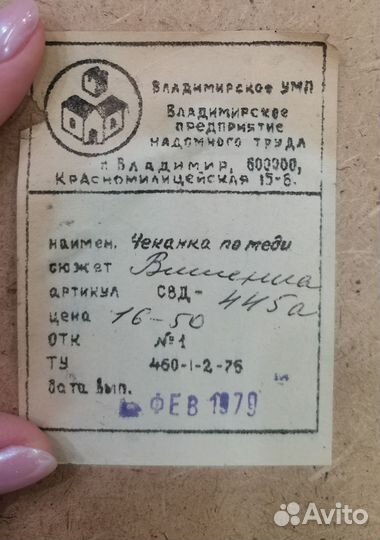 Владимирское УМП
Владимирское
предприятие
надомного труда
г. Владимир, 600000,
Красномилицейская 15-б.
наимен. Чеканка по меди
сюжет
артикул СВД- 445а
цена 16-50
ОТК №1
ТУ 460-1-2-76
дата вып.
ФЕВ 1979
Avito